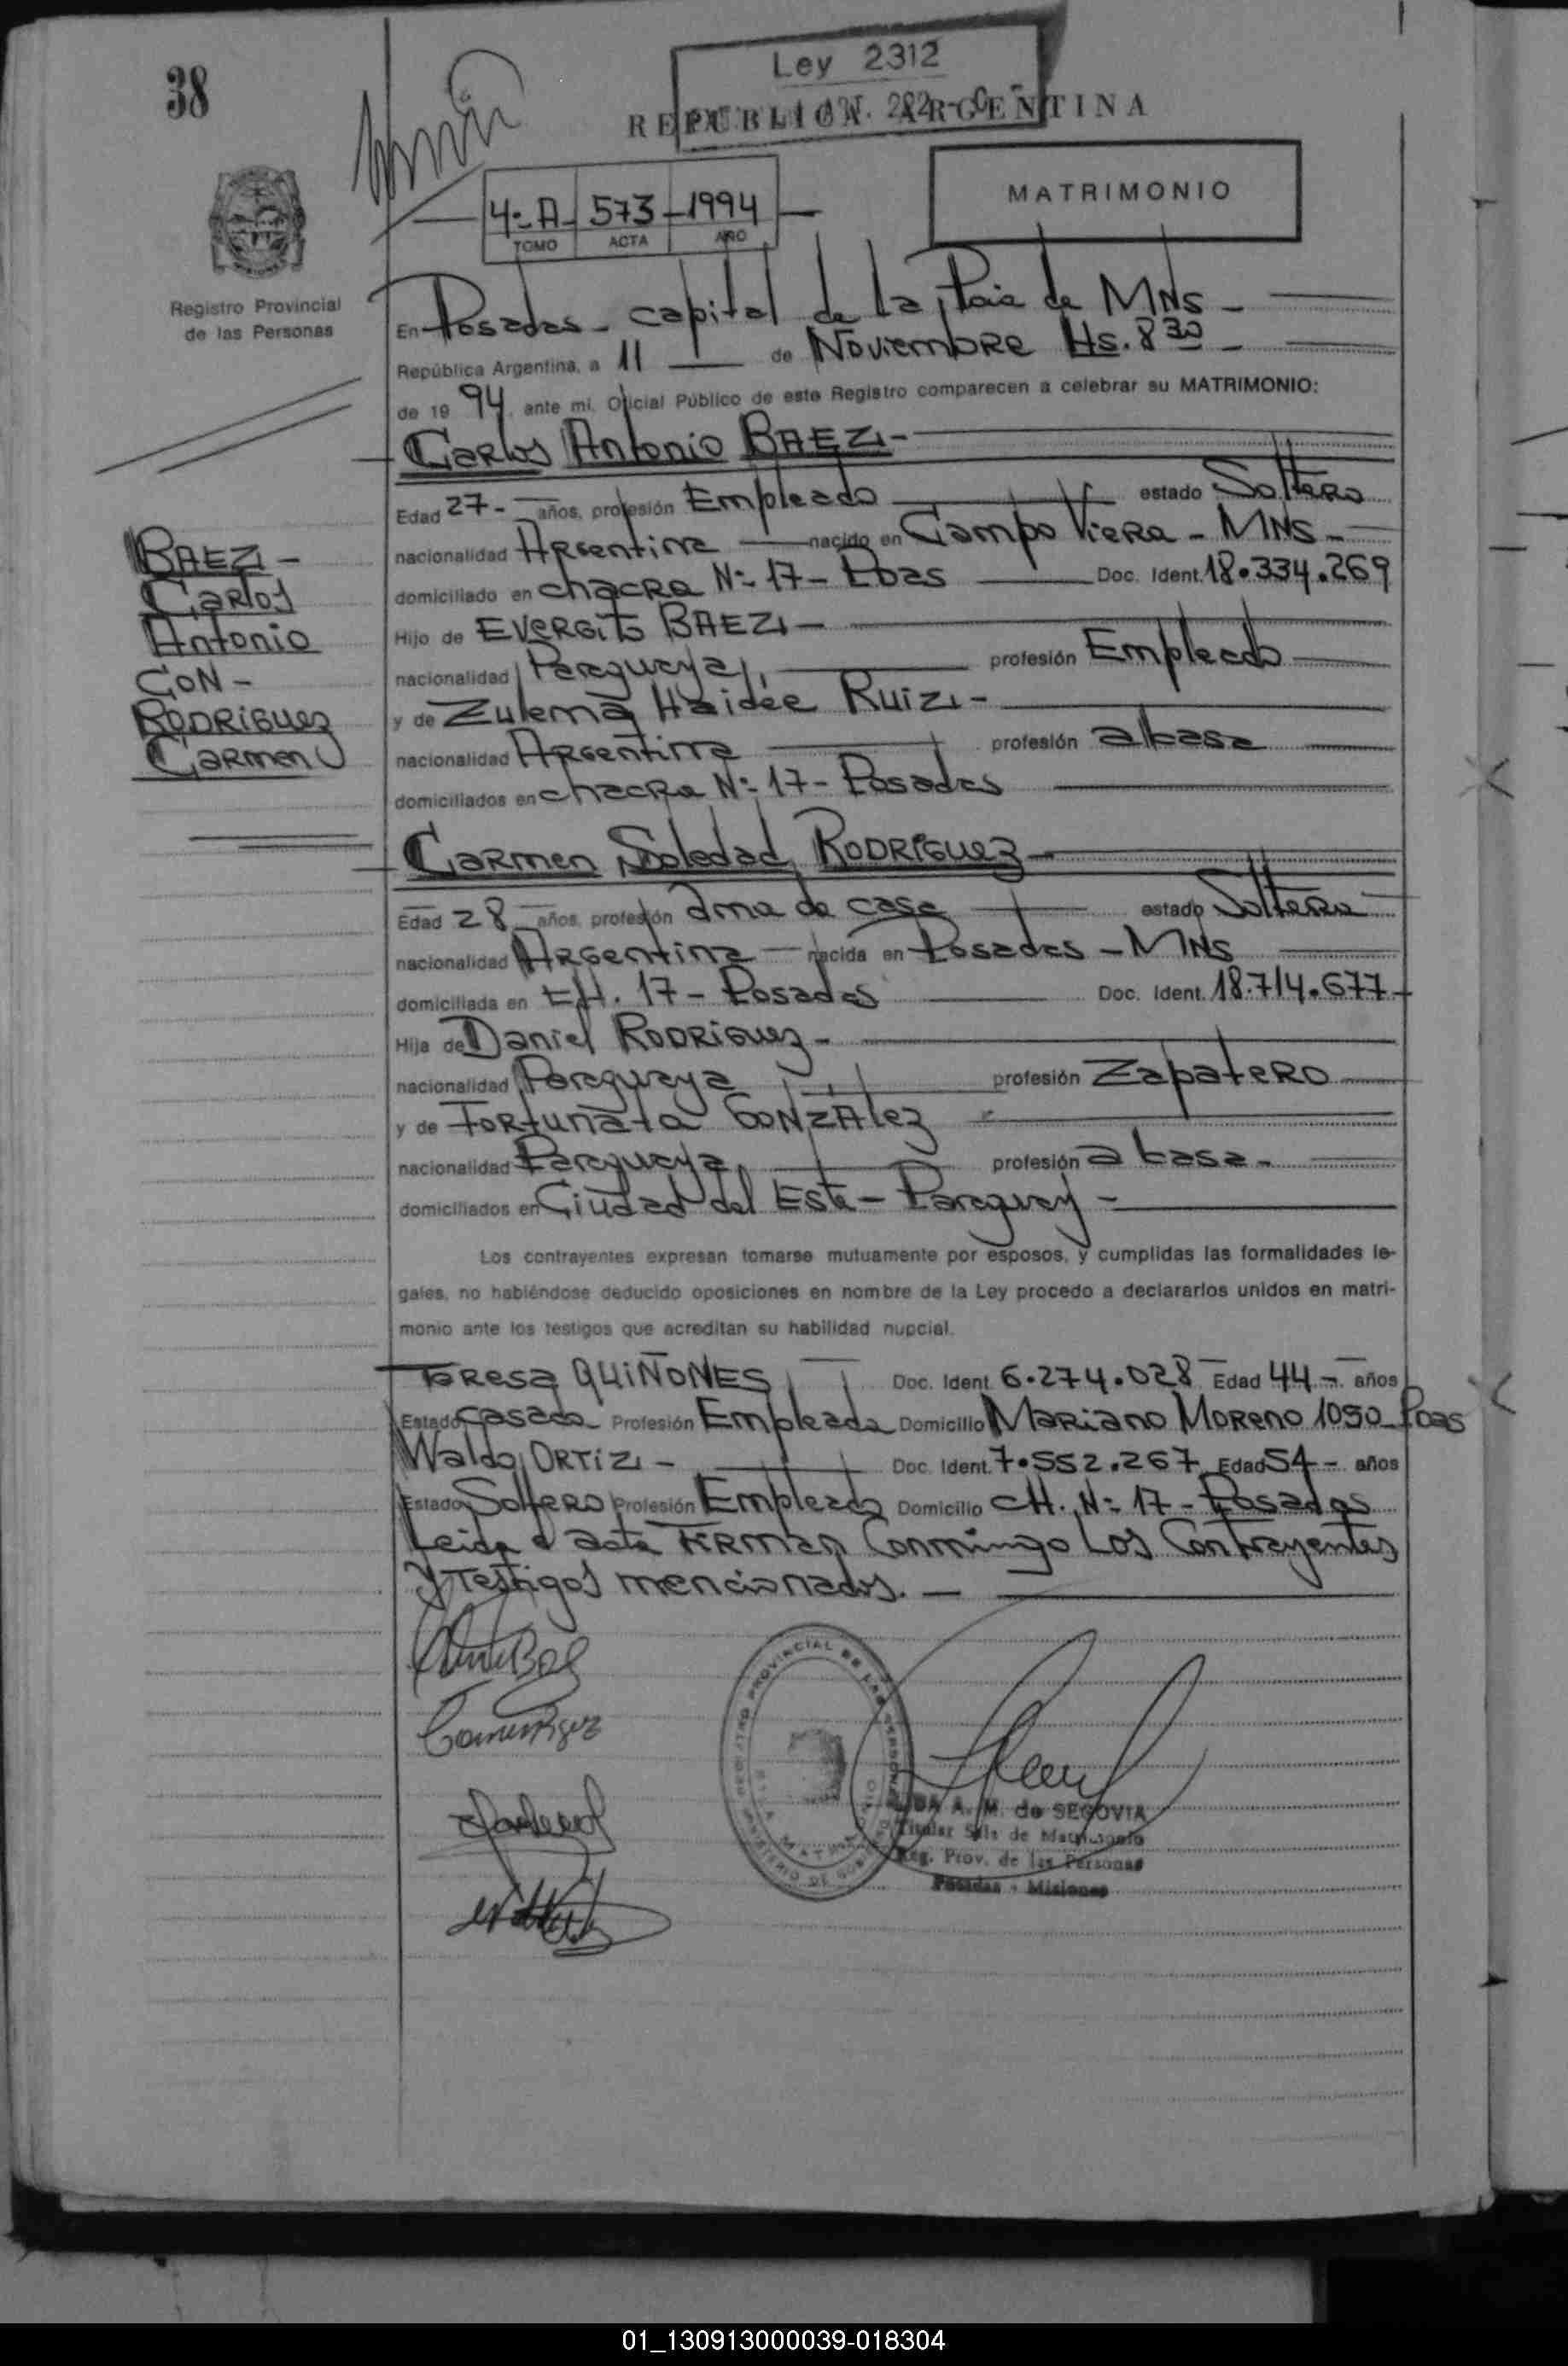 38
Ley 2312
REPUBLICA ARGENTINA
MATRIMONIO
4º A - 573 - 1994
TOMO ACTA AÑO
Registro Provincial
de las Personas
En Posadas - capital de la Pcia de MNS -
República Argentina, a 11 de Noviembre Hs. 8 30 -
de 19 94, ante mi, Oficial Público de este Registro comparecen a celebrar su MATRIMONIO:
Carlos Antonio BAEZ -
Edad 27 - años, profesión Empleado estado Soltero
nacionalidad Argentina nacido en Campo Viera - MNS -
domiciliado en chacra Nº 17 - Pdas Doc. Ident. 18.334.269
Hijo de Evergito BAEZ -
nacionalidad Paraguaya profesión Empleado
y de Zulema Haidée Ruiz -
nacionalidad Argentina profesión a/casa
domiciliados en chacra Nº 17 - Posadas
BAEZ -
Carlos
Antonio
CON -
RODRIGUEZ
Carmen
Carmen Soledad RODRIGUEZ -
Edad 28 años, profesión ama de casa estado Soltera
nacionalidad Argentina - nacida en Posadas - MNS
domiciliada en CH. 17 - Posadas Doc. Ident. 18.714.677 -
Hija de Daniel RODRIGUEZ -
nacionalidad Paraguaya profesión Zapatero
y de Fortunata GONZÁLEZ
nacionalidad Paraguaya profesión a/casa -
domiciliados en Ciudad del Este - Paraguay -
Los contrayentes expresan tomarse mutuamente por esposos, y cumplidas las formalidades le-
gales, no habiéndose deducido oposiciones en nombre de la Ley procedo a declararlos unidos en matri-
monio ante los testigos que acreditan su habilidad nupcial.
Teresa QUIÑONES Doc. Ident. 6.274.028 Edad 44 - años
Estado casada Profesión Empleada Domicilio Mariano Moreno 1050 - Pdas
Waldo ORTIZ - Doc. Ident. 7.552.267 Edad 54 - años
Estado Soltero Profesión Empleado Domicilio CH. Nº 17 - Posadas
Leida el acta Firman Conmingo Los Contrayentes
y Testigos mencionados. -
REGISTRO PROVINCIAL DE LAS PERSONAS
MINISTERIO DE GOBIERNO
A. M. de SEGOVIA
Titular Sala de Matrimonio
Reg. Prov. de las Personas
Posadas - Misiones
01_130913000039-018304